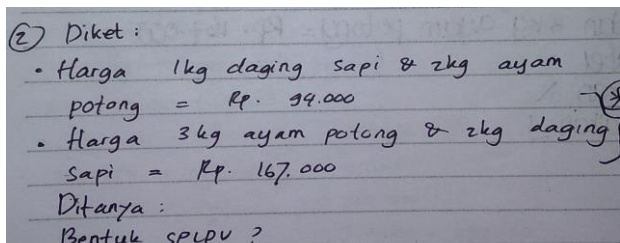 ② Diket :
• Harga 1kg daging sapi & 2kg ayam
potong = Rp. 94.000
• Harga 3kg ayam potong & 2kg daging
sapi = Rp. 167.000
Ditanya :
Bentuk SPLDV ?